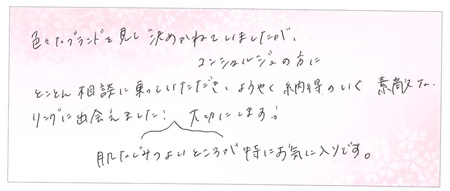 色々なブランドを見して決めかねていましたが、
コンシェルジュの方に
とことん相談に乗っていただき、ようやく納得のいく素敵な
リングに出会えました！大切にします！
肌なじみつよいところが特にお気に入りです。